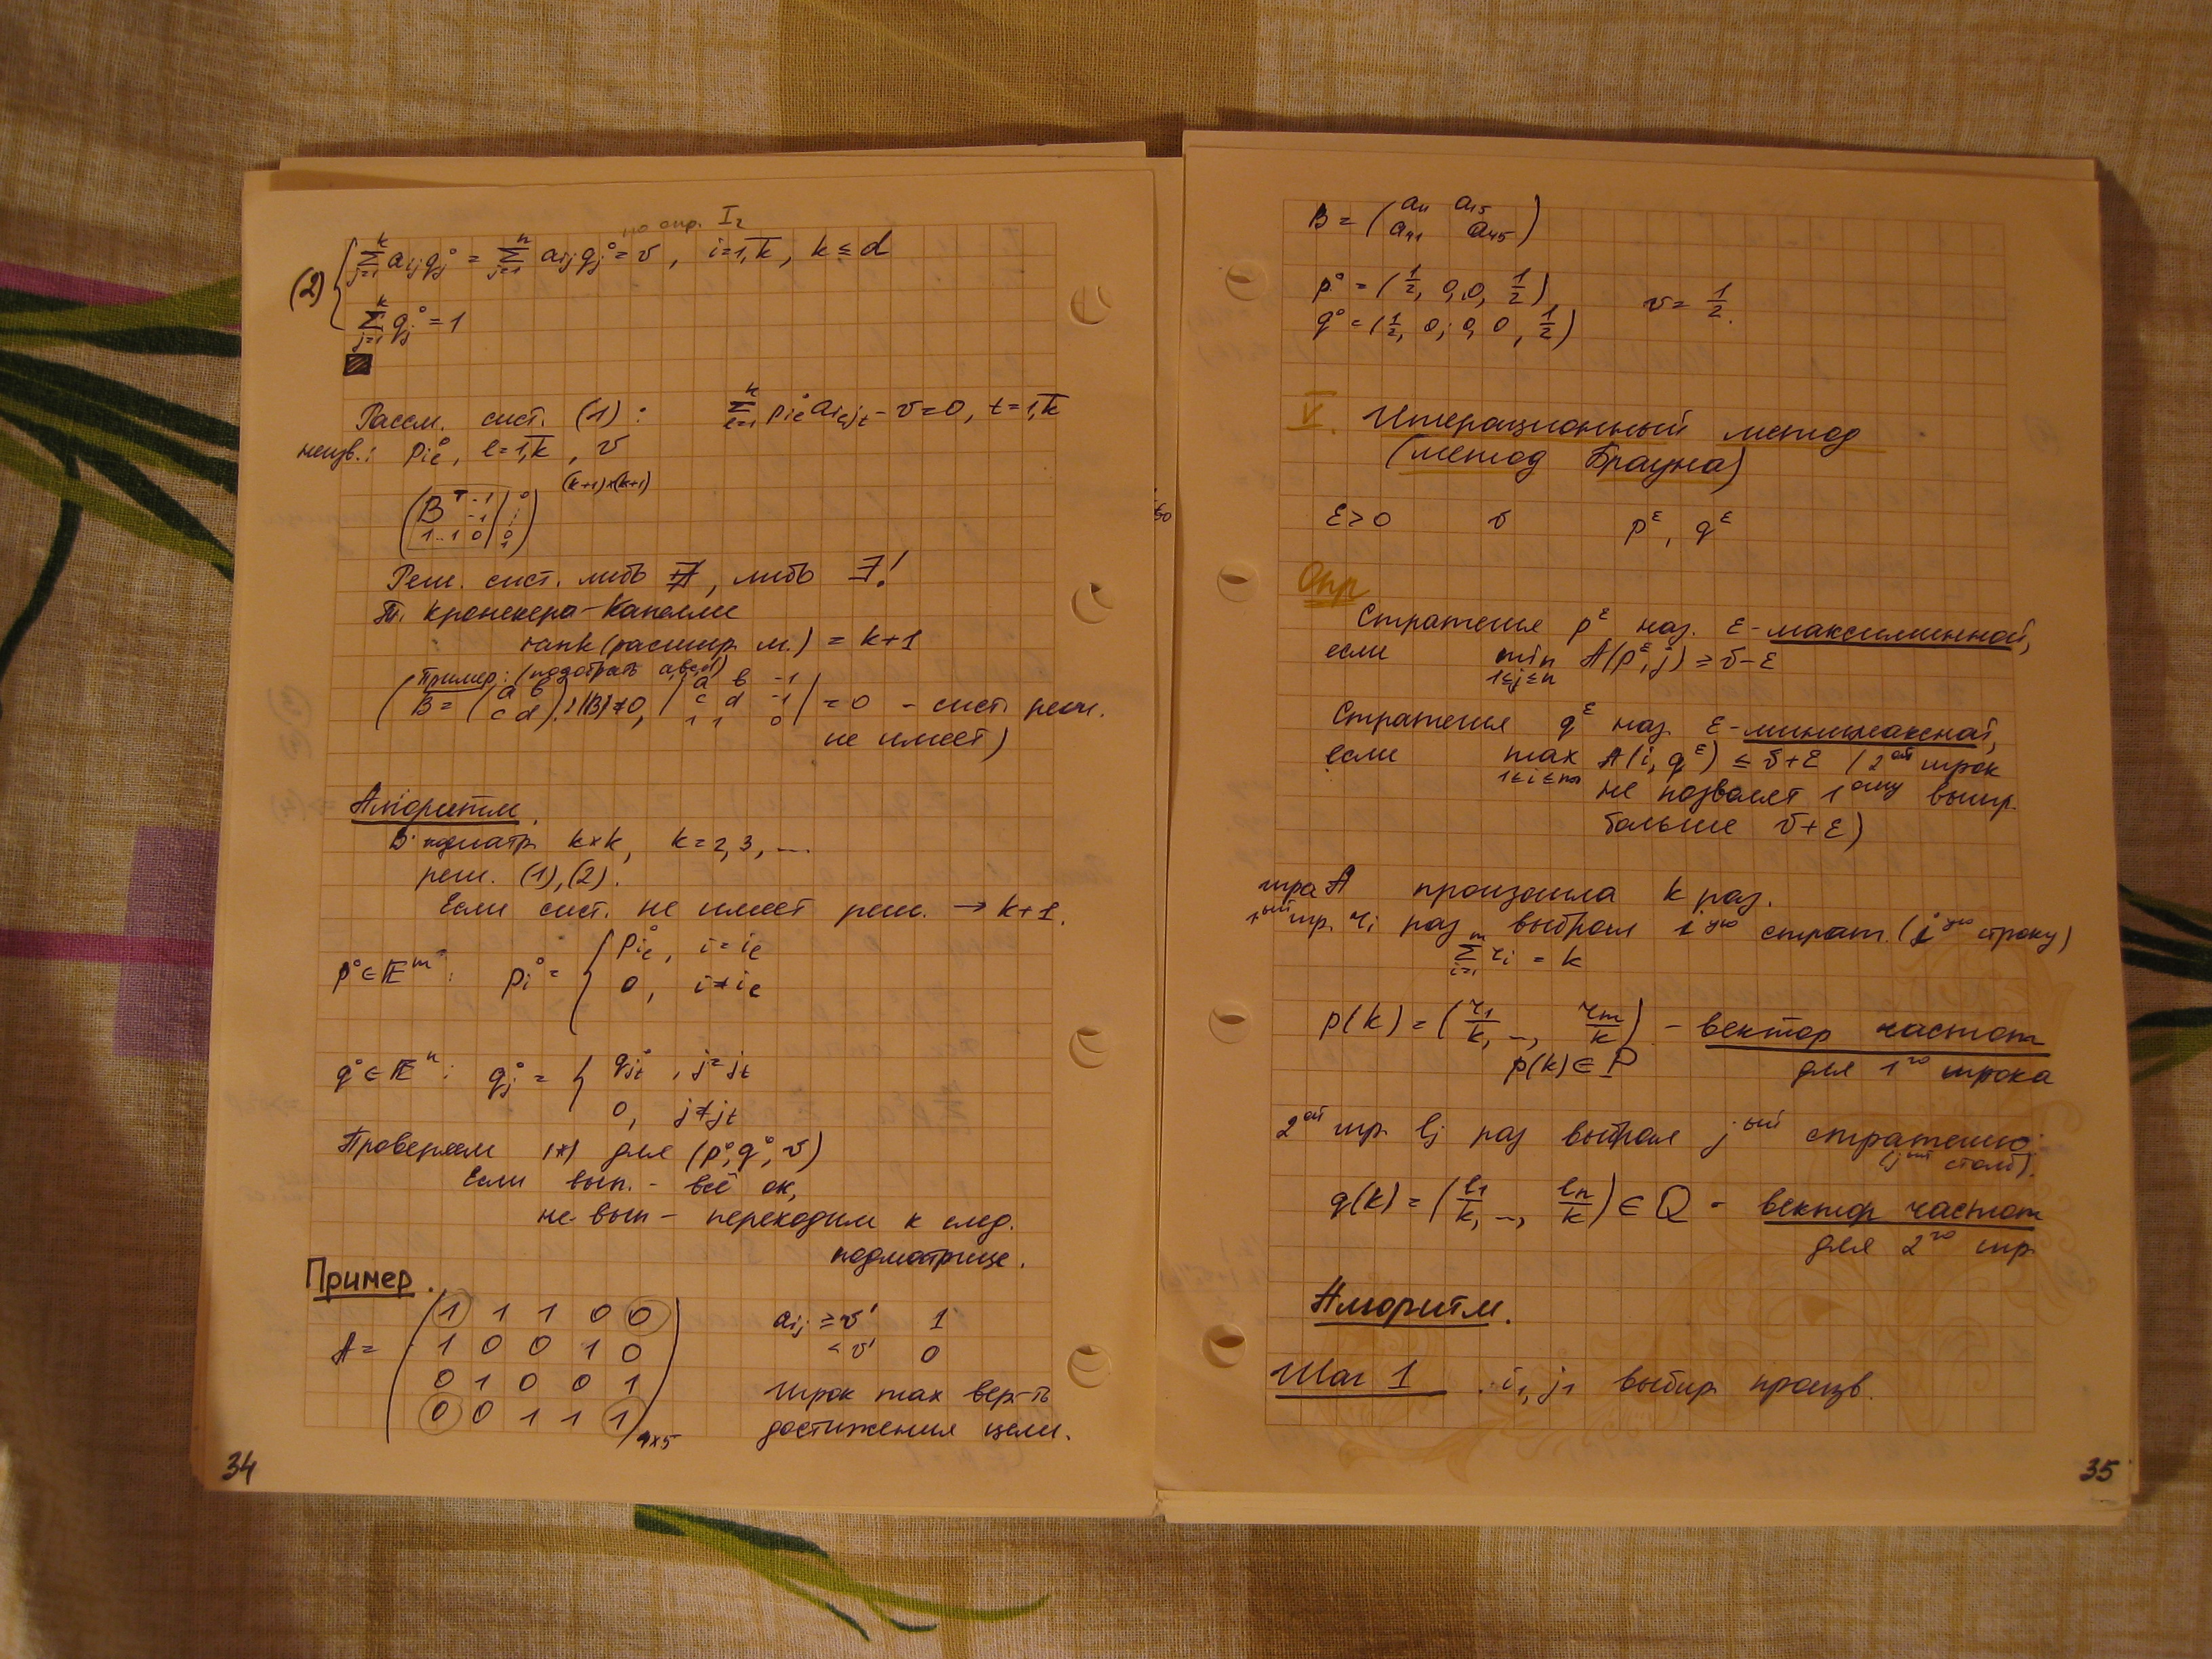 по опр. I₂
(2) { ∑_{j=1}^{k} a_{ij} q_j° = ∑_{j=1}^{n} a_{ij} q_j° = v, i=1,k̅, k ≤ d
∑_{j=1}^{k} q_j° = 1
Рассм. сист. (1): ∑_{l=1}^{k} p_{i_l}° a_{i_l j_t} - v = 0, t=1,k̅
неизв.: p_{i_l}°, l=1,k̅, v
(k+1)×(k+1)
( Bᵀ -1 | 0
-1 | ⋮
1..1 0 | 0 1 )
Реш. сист. либо ∄, либо ∃!
Т. Кронекера-Капелли
rank (расшир. м.) = k+1
Пример: (подобрать a,b,c,d)
( B = (a b; c d): |B| ≠ 0, |a b -1; c d -1; 1 1 0| = 0 - сист. реш.
не имеет)
Алгоритм.
В подматр. k×k, k=2,3,...
реш. (1),(2).
Если сист. не имеет реш. → k+1.
p° ∈ E^m: p_i° = { p_{i_l}°, i = i_l
0, i ≠ i_l
q° ∈ E^n: q_j° = { q_{j_t}°, j = j_t
0, j ≠ j_t
Проверяем (*) для (p°, q°, v)
Если вып. - всё ок,
не вып - переходим к след.
подматрице.
Пример.
A = ( 1 1 1 0 0
1 0 0 1 0
0 1 0 0 1
0 0 1 1 1 )_{4×5}
a_{ij} ≥ v' 1
< v' 0
Игрок max вер-ть
достижения цели.
34
B = ( a₁₁ a₁₅
a₄₁ a₄₅ )
p° = (1/2, 0,0, 1/2),
q° = (1/2, 0, 0, 0, 1/2)
v = 1/2.
V. Итерационный метод
(метод Брауна)
ε > 0 v p^ε, q^ε
Опр
Стратегия p^ε наз. ε-максиминной,
если min_{1≤j≤n} A(p^ε, j) ≥ v-ε
Стратегия q^ε наз. ε-минимаксной,
если max_{1≤i≤m} A(i, q^ε) ≤ v+ε (2ой игрок
не позволяет 1ому выигр.
больше v+ε)
игра A произошла k раз.
1ый игр. r_i раз выбрал i ую страт. (i ую строку)
∑_{i=1}^{m} r_i = k
p(k) = (r₁/k, .., r_m/k) - вектор частот
p(k) ∈ P для 1го игрока
2ой игр. l_j раз выбрал j ый стратегию
(j ый столб).
q(k) = (l₁/k, .., l_n/k) ∈ Q - вектор частот
для 2го игр.
Алгоритм.
Шаг 1 i₁, j₁ выбир. произв.
35